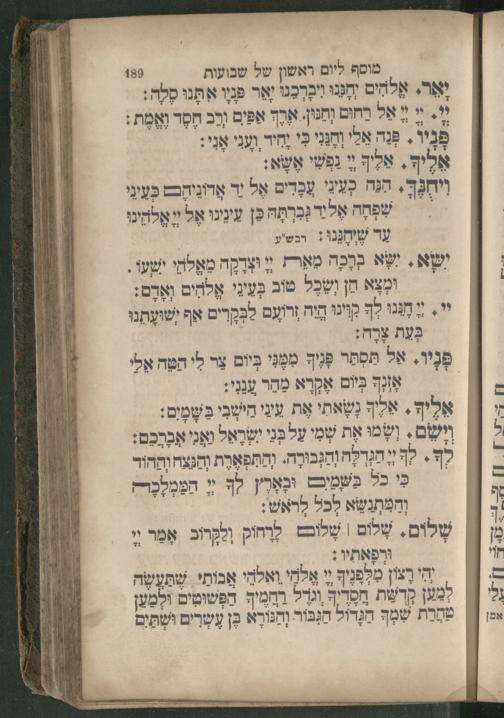 189 מוסף ליום ראשון של שבועות
יָאֵר. אֱלֹהִים יְחָנֵּנוּ וִיבָרְכֵנוּ יָאֵר פָּנָיו אִתָּנוּ סֶלָה:
יְיָ. יְיָ יְיָ אֵל רַחוּם וְחַנּוּן. אֶרֶךְ אַפַּיִם וְרַב חֶסֶד וֶאֱמֶת:
פָּנָיו. פְּנֵה אֵלַי וְחָנֵּנִי כִּי יָחִיד וְעָנִי אָנִי:
אֵלֶיךָ. אֵלֶיךָ יְיָ נַפְשִׁי אֶשָּׂא:
וִיחֻנֶּךָּ. הִנֵּה כְעֵינֵי עֲבָדִים אֶל יַד אֲדוֹנֵיהֶם כְּעֵינֵי
שִׁפְחָה אֶל יַד גְּבִרְתָּהּ כֵּן עֵינֵינוּ אֶל יְיָ אֱלֹהֵינוּ
עַד שֶׁיְּחָנֵּנוּ: רבש״ע
יִשָּׂא. יִשָּׂא בְרָכָה מֵאֵת יְיָ וּצְדָקָה מֵאֱלֹהֵי יִשְׁעוֹ.
וּמְצָא חֵן וְשֵׂכֶל טוֹב בְּעֵינֵי אֱלֹהִים וְאָדָם:
יְיָ. יְיָ חָנֵּנוּ לְךָ קִוִּינוּ הֱיֵה זְרוֹעָם לַבְּקָרִים אַף יְשׁוּעָתֵנוּ
בְּעֵת צָרָה:
פָּנָיו. אַל תַּסְתֵּר פָּנֶיךָ מִמֶּנִּי בְּיוֹם צַר לִי הַטֵּה אֵלַי
אָזְנֶךָ בְּיוֹם אֶקְרָא מַהֵר עֲנֵנִי:
אֵלֶיךָ. אֵלֶיךָ נָשָׂאתִי אֶת עֵינַי הַיּשְׁבִי בַּשָּׁמָיִם:
וְיָשֵׂם. וְשָׂמוּ אֶת שְׁמִי עַל בְּנֵי יִשְׂרָאֵל וַאֲנִי אֲבָרְכֵם:
לְךָ. לְךָ יְיָ הַגְּדֻלָּה וְהַגְּבוּרָה. וְהַתִּפְאֶרֶת וְהַנֵּצַח וְהַהוֹד
כִּי כֹל בַּשָּׁמַיִם וּבָאָרֶץ לְךָ יְיָ הַמַּמְלָכָה
וְהַמִּתְנַשֵּׂא לְכֹל לְרֹאשׁ:
שָׁלוֹם. שָׁלוֹם | שָׁלוֹם לָרָחוֹק וְלַקָּרוֹב אָמַר יְיָ
וּרְפָאתִיו:
יְהִי רָצוֹן מִלְּפָנֶיךָ יְיָ אֱלֹהַי וֵאלֹהֵי אֲבוֹתַי שֶׁתַּעֲשֶׂה
לְמַעַן קְדֻשַּׁת חֲסָדֶיךָ וְגֹדֶל רַחֲמֶיךָ הַפְּשׁוּטִים וּלְמַעַן
טַהֲרַת שִׁמְךָ הַגָּדוֹל הַגִּבּוֹר וְהַנּוֹרָא בֶּן עֶשְׂרִים וּשְׁתַּיִם